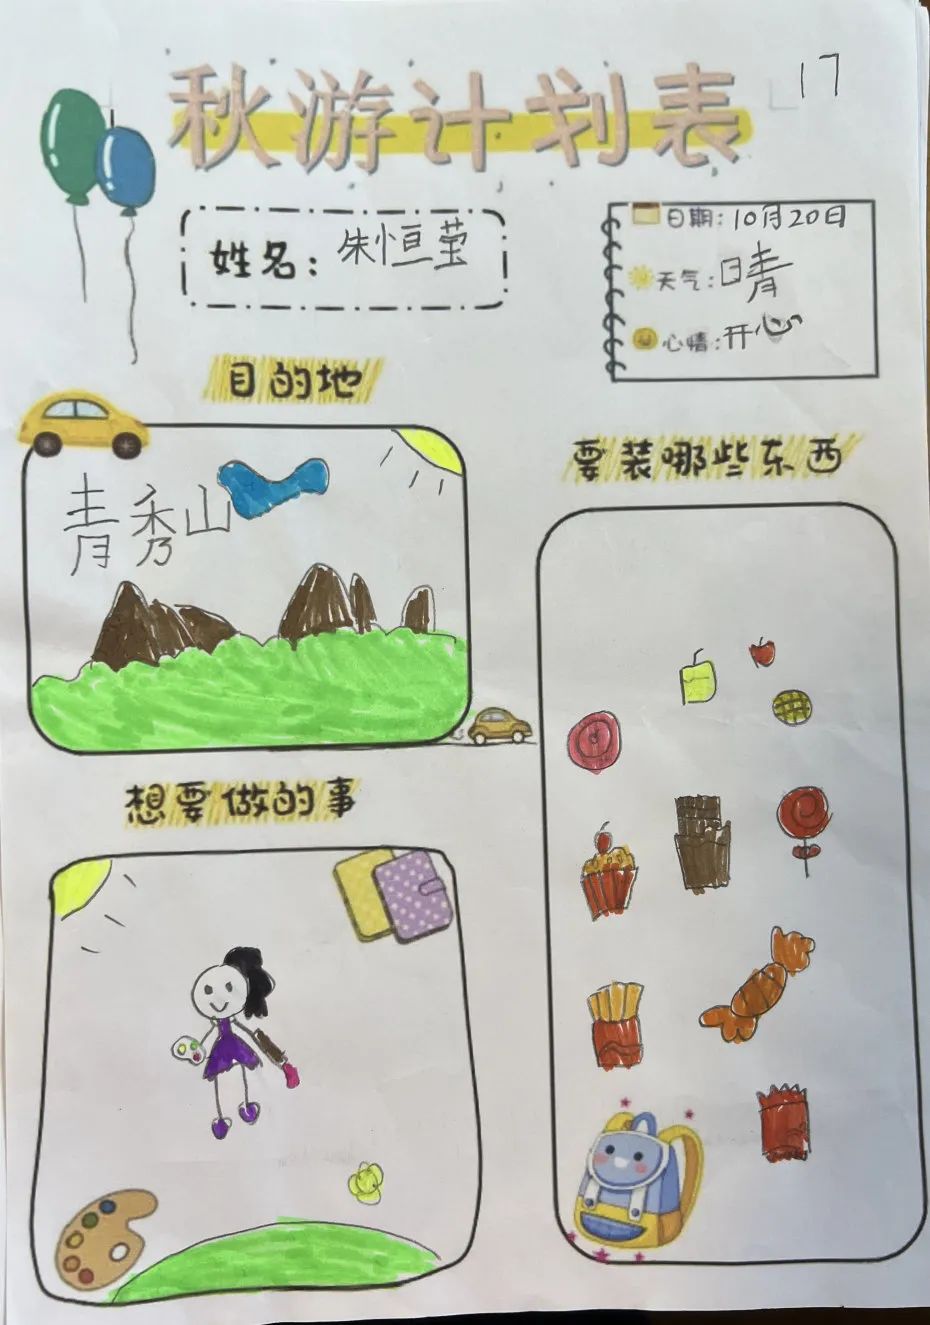 秋游计划表
17
姓名：朱恒莹
日期：10月20日
天气：晴
心情：开心
目的地
青秀山
要装哪些东西
想要做的事